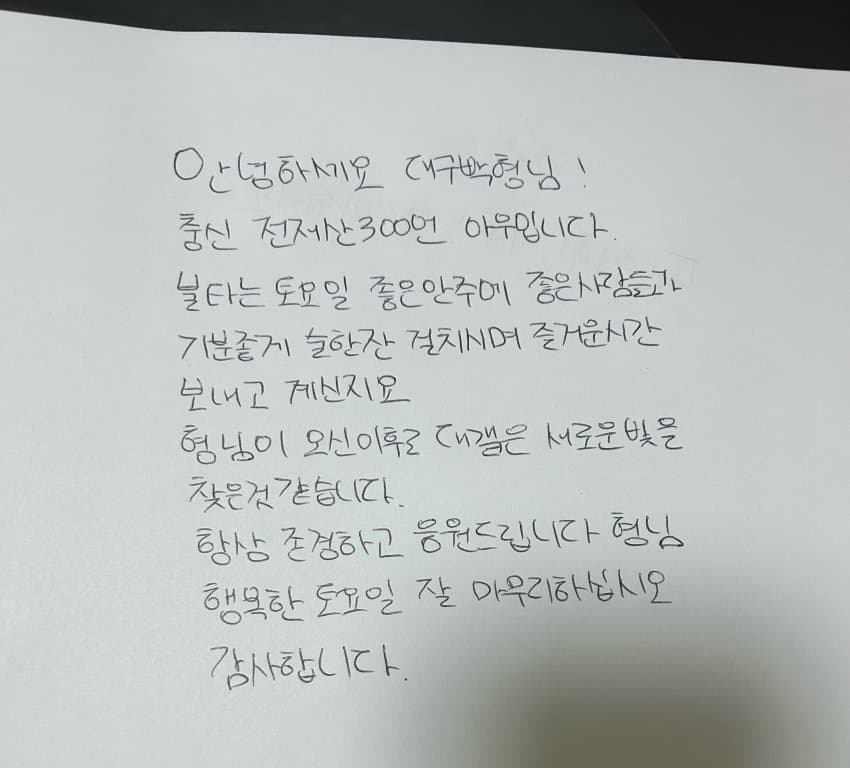 안녕하세요 대구박형님!
충신 전재산300언 아우입니다.
불타는 토요일 좋은안주에 좋은사람들과
기분좋게 술한잔 걸치시며 즐거운시간
보내고 계신지요
형님이 오신이후로 대갤은 새로운빛을
찾은것같습니다.
항상 존경하고 응원드립니다 형님
행복한 토요일 잘 마무리하십시오
감사합니다.